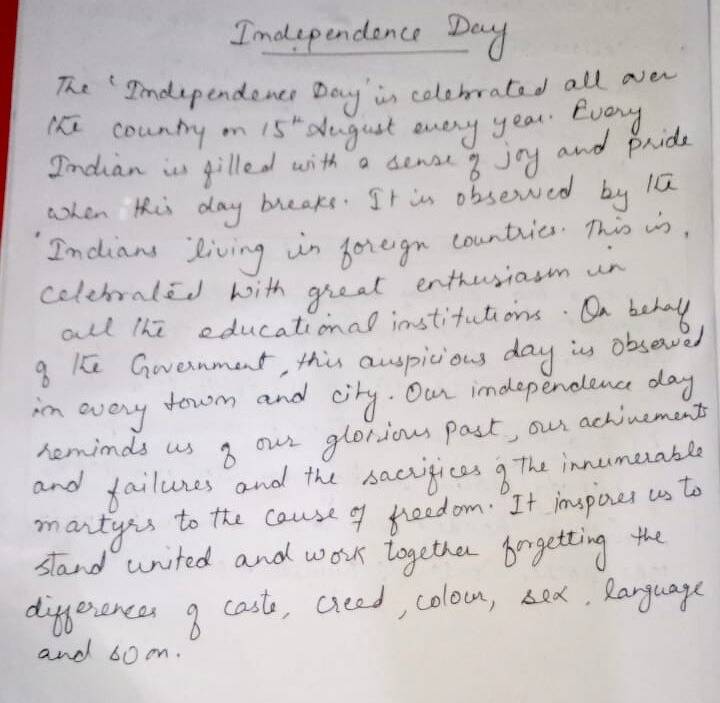 Independence Day
The 'Independence Day' is celebrated all over
the country on 15th August every year. Every
Indian is filled with a sense of joy and pride
when this day breaks. It is observed by the
Indians living in foreign countries. This is,
celebrated with great enthusiasm in
all the educational institutions. On behalf
of the Government, this auspicious day is observed
in every town and city. Our independence day
reminds us of our glorious past, our achivements
and failures and the sacrifices of the innumerable
martyrs to the cause of freedom. It inspires us to
stand united and work together forgetting the
differences of caste, creed, colour, sex, language
and so on.